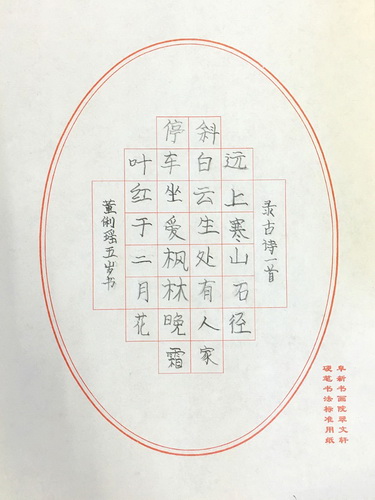 录古诗一首
远上寒山石径
斜白云生处有人家
停车坐爱枫林晚霜
叶红于二月花
董俐瑶五岁书
阜新书画院萃文轩
硬笔书法标准用纸